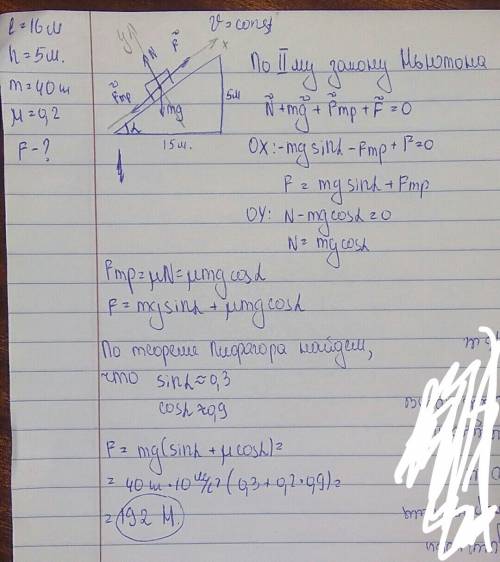 l = 16 м
h = 5 м.
m = 40 кг
μ = 0,2
F - ?
y
N
F
x
v = const
Fтр
mg
α
5м
15 м.
По II му закону Ньютона
N + mg + Fтр + F = 0
OX: -mg sinα - Fтр + F = 0
F = mg sinα + Fтр
OY: N - mg cosα = 0
N = mg cosα
Fтр = μN = μmg cosα
F = mg sinα + μmg cosα
По теореме Пифагора найдем,
что sinα ≈ 0,3
cosα ≈ 0,9
F = mg(sinα + μcosα) =
= 40 кг · 10 м/с² (0,3 + 0,2 · 0,9) =
= 192 Н.